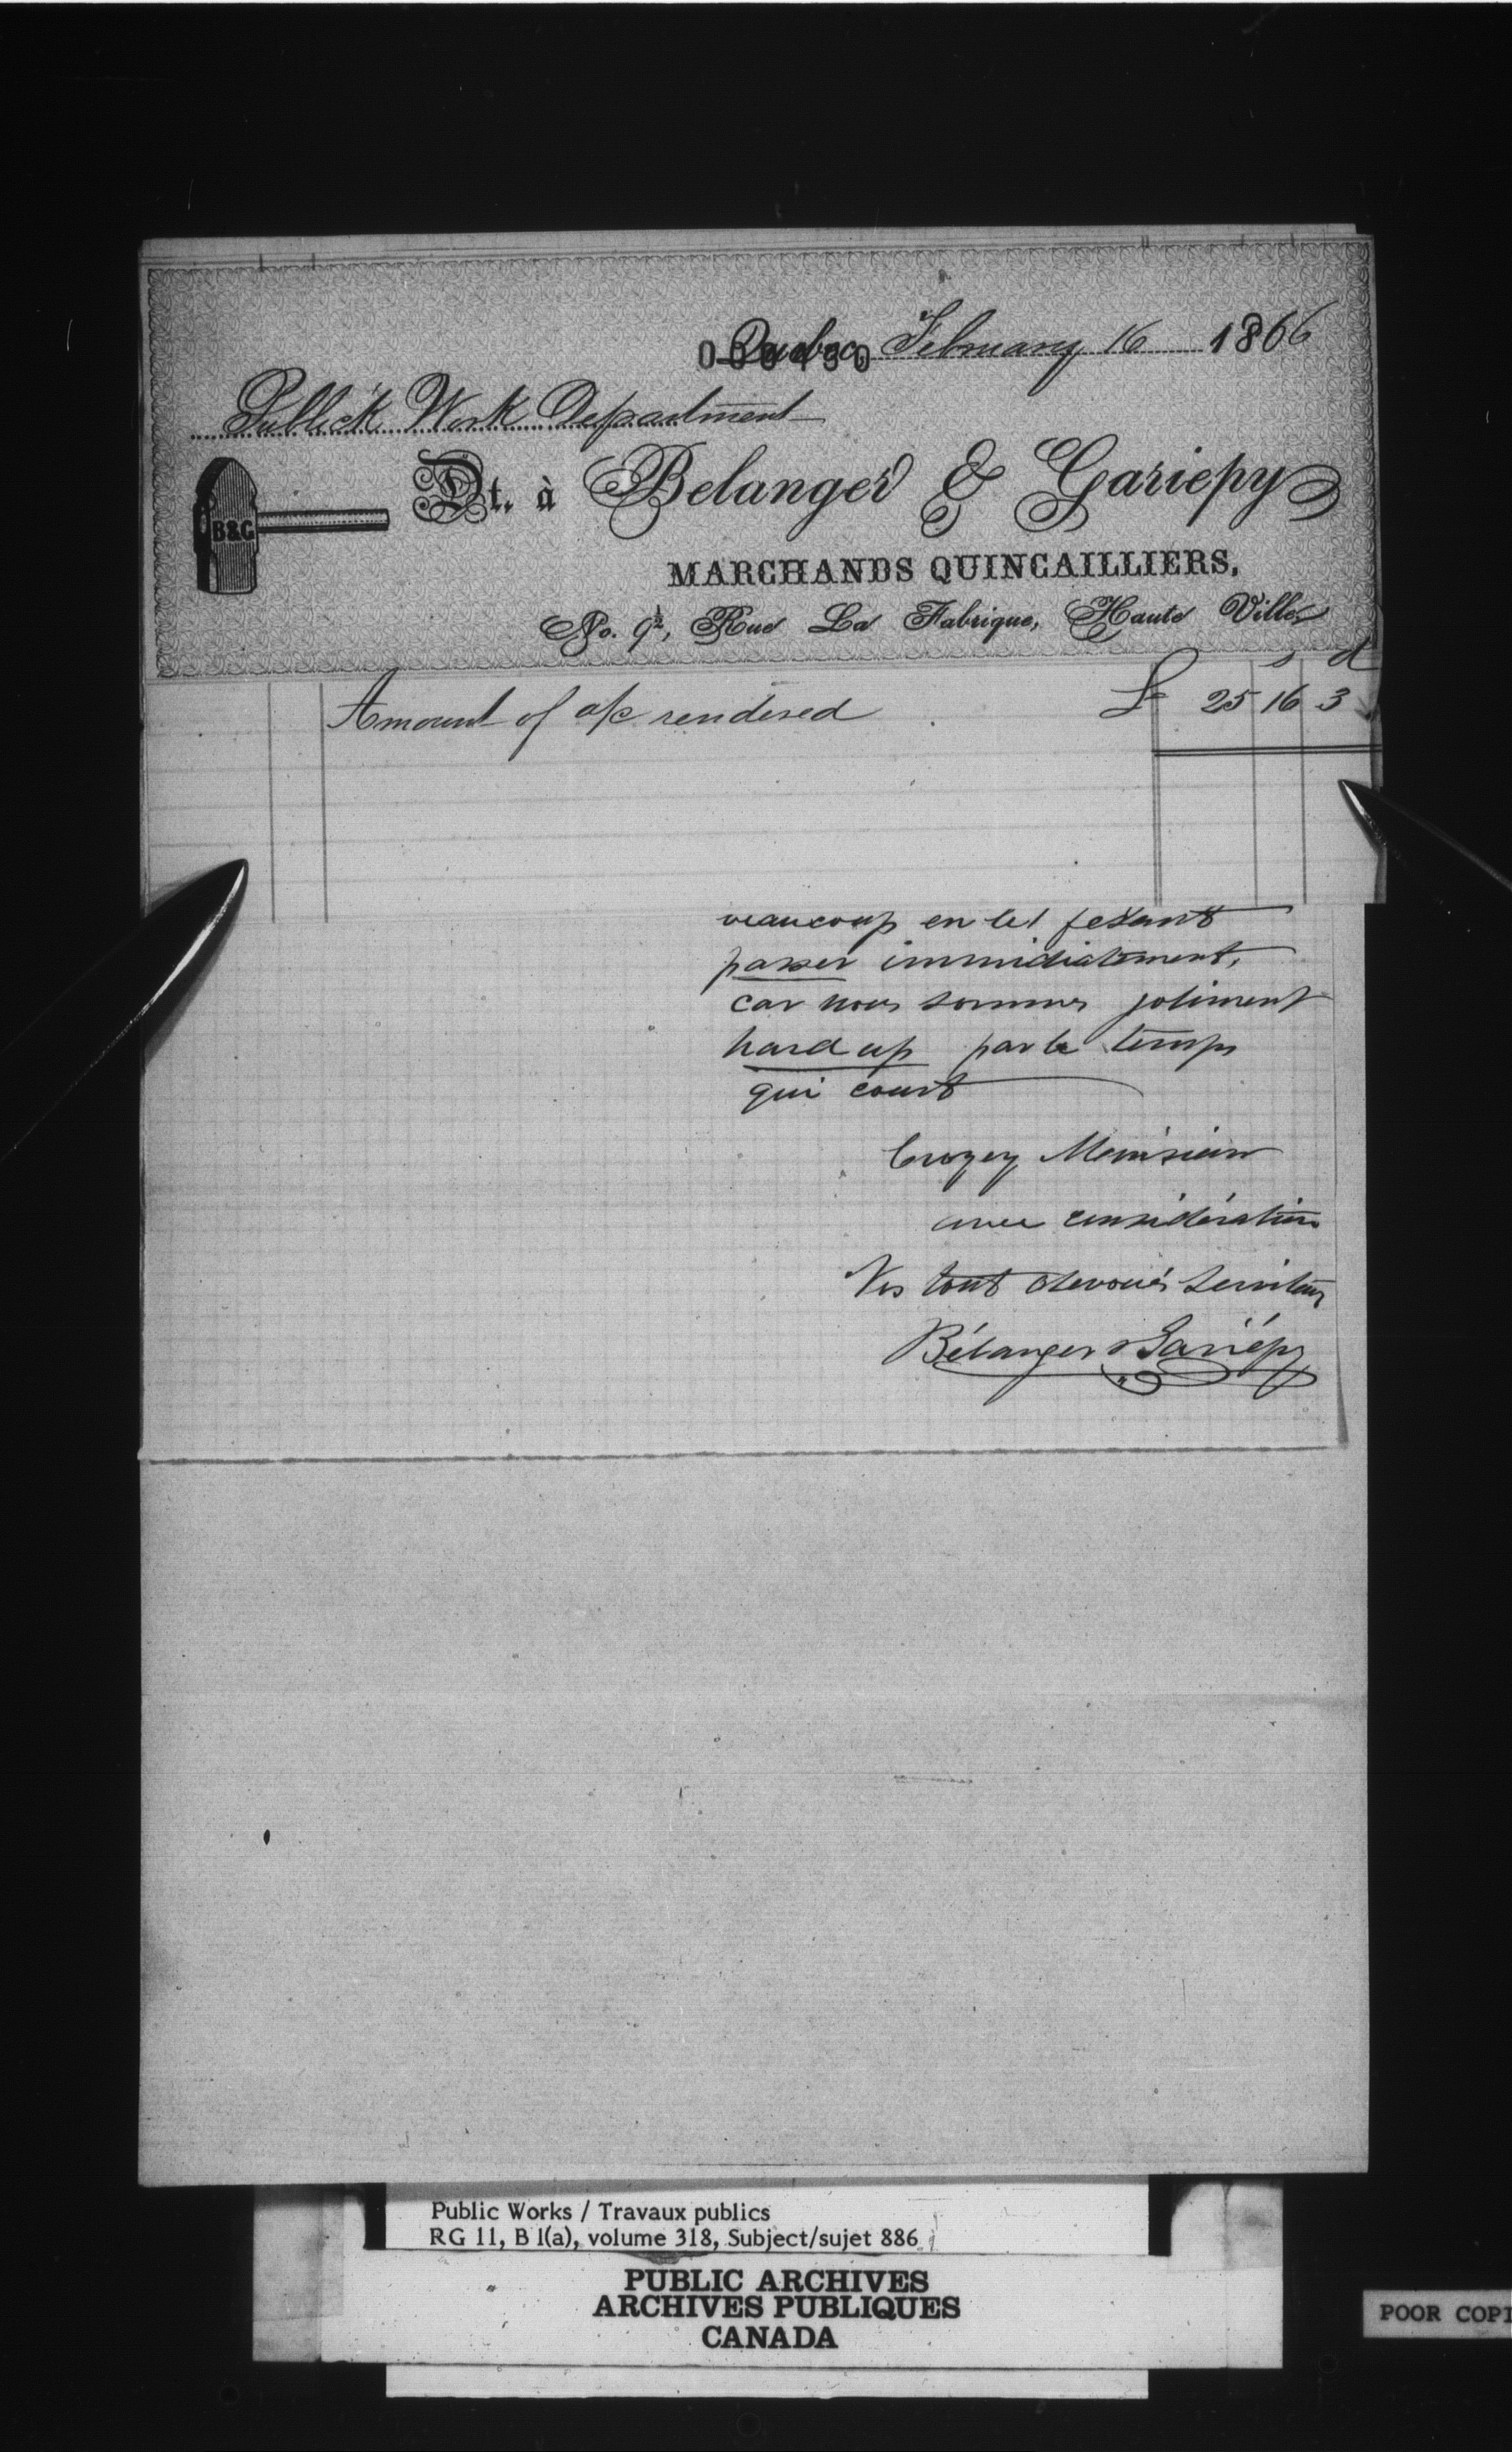 Quebec, February 16 1866
Publick Work Department
B&G
Dt. à Belanger & Gariepy
MARCHANDS QUINCAILLIERS,
No. 9½, Rue La Fabrique, Haute Ville
s d
Amount of a/c rendered £ 25 16 3
beaucoup en les fesant
passer immédiatement,
car nous sommes joliment
hard up par le temps
qui court
Croyez Monsieur
avec considération
Vos tout dévoués serviteurs
Bélanger & Gariépy
Public Works / Travaux publics
RG 11, B 1(a), volume 318, Subject/sujet 886
PUBLIC ARCHIVES
ARCHIVES PUBLIQUES
CANADA
POOR COPI